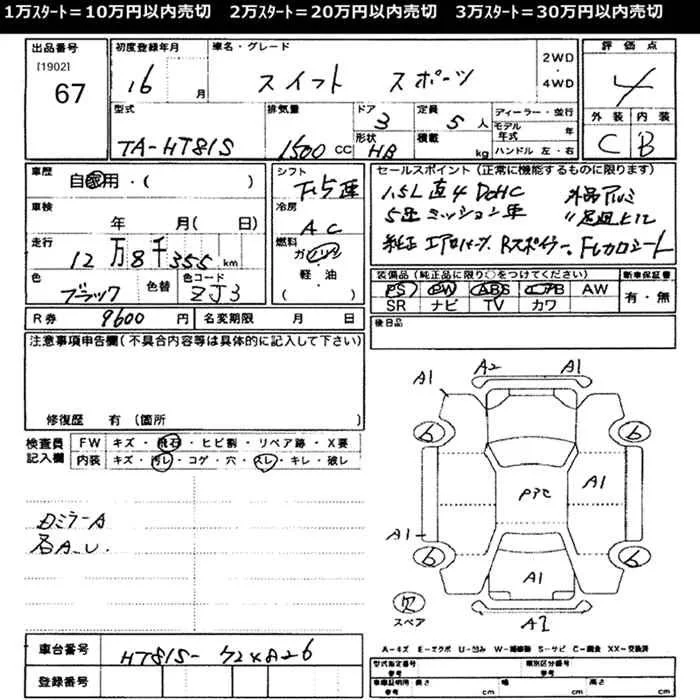 1万ｽﾀｰﾄ＝10万円以内売切　2万ｽﾀｰﾄ＝20万円以内売切　3万ｽﾀｰﾄ＝30万円以内売切
出品番号 初度登録年月 車名・グレード 2WD・4WD 評価点
[1902]
67 16 月 スイフト スポーツ 4
型式 排気量 ドア 定員 ディーラー・並行 外装 内装
TA-HT81S 1500 CC 3 5 人 モデル年式 年 C B
形状 HB 積載 kg ハンドル 左・右
車歴 自家用・( ) シフト F5速 セールスポイント(正常に機能するものに限ります)
車検 年 月( 日) 冷房 AC 1.5L 直4 DOHC 外品アルミ
5速ミッション車
走行 12万8千355km 燃料 ガソリン 純正エアロパーツ、Rスポイラー、
色 ブラック 色替 色コード ZJ3 軽油・( )
装備品(純正品に限り○をつけてください) 新車保証書
PS PW ABS エアB AW 有・無
SR ナビ TV カワ
R券 9600 円 名変期限 月 日 後日品
注意事項申告欄(不具合内容等は具体的に記入して下さい)
修復歴 有(箇所 )
検査員記入欄 FW キズ・飛石・ヒビ割・リペア跡・X要
内装 キズ・汚レ・コゲ・穴・スレ・キレ・破レ
A1 A2 A1
6 6
P3C A1
A1
6 6
A1
欠
スペア
A2
A-キズ E-エクボ U-凹み W-補修跡 S-サビ C-腐食 XX-交換済
車台番号 HT81S-
登録番号
型式指定番号 類別区分番号
参考 参考
車庫証明用 長さ 幅 高さ
参考 cm cm cm